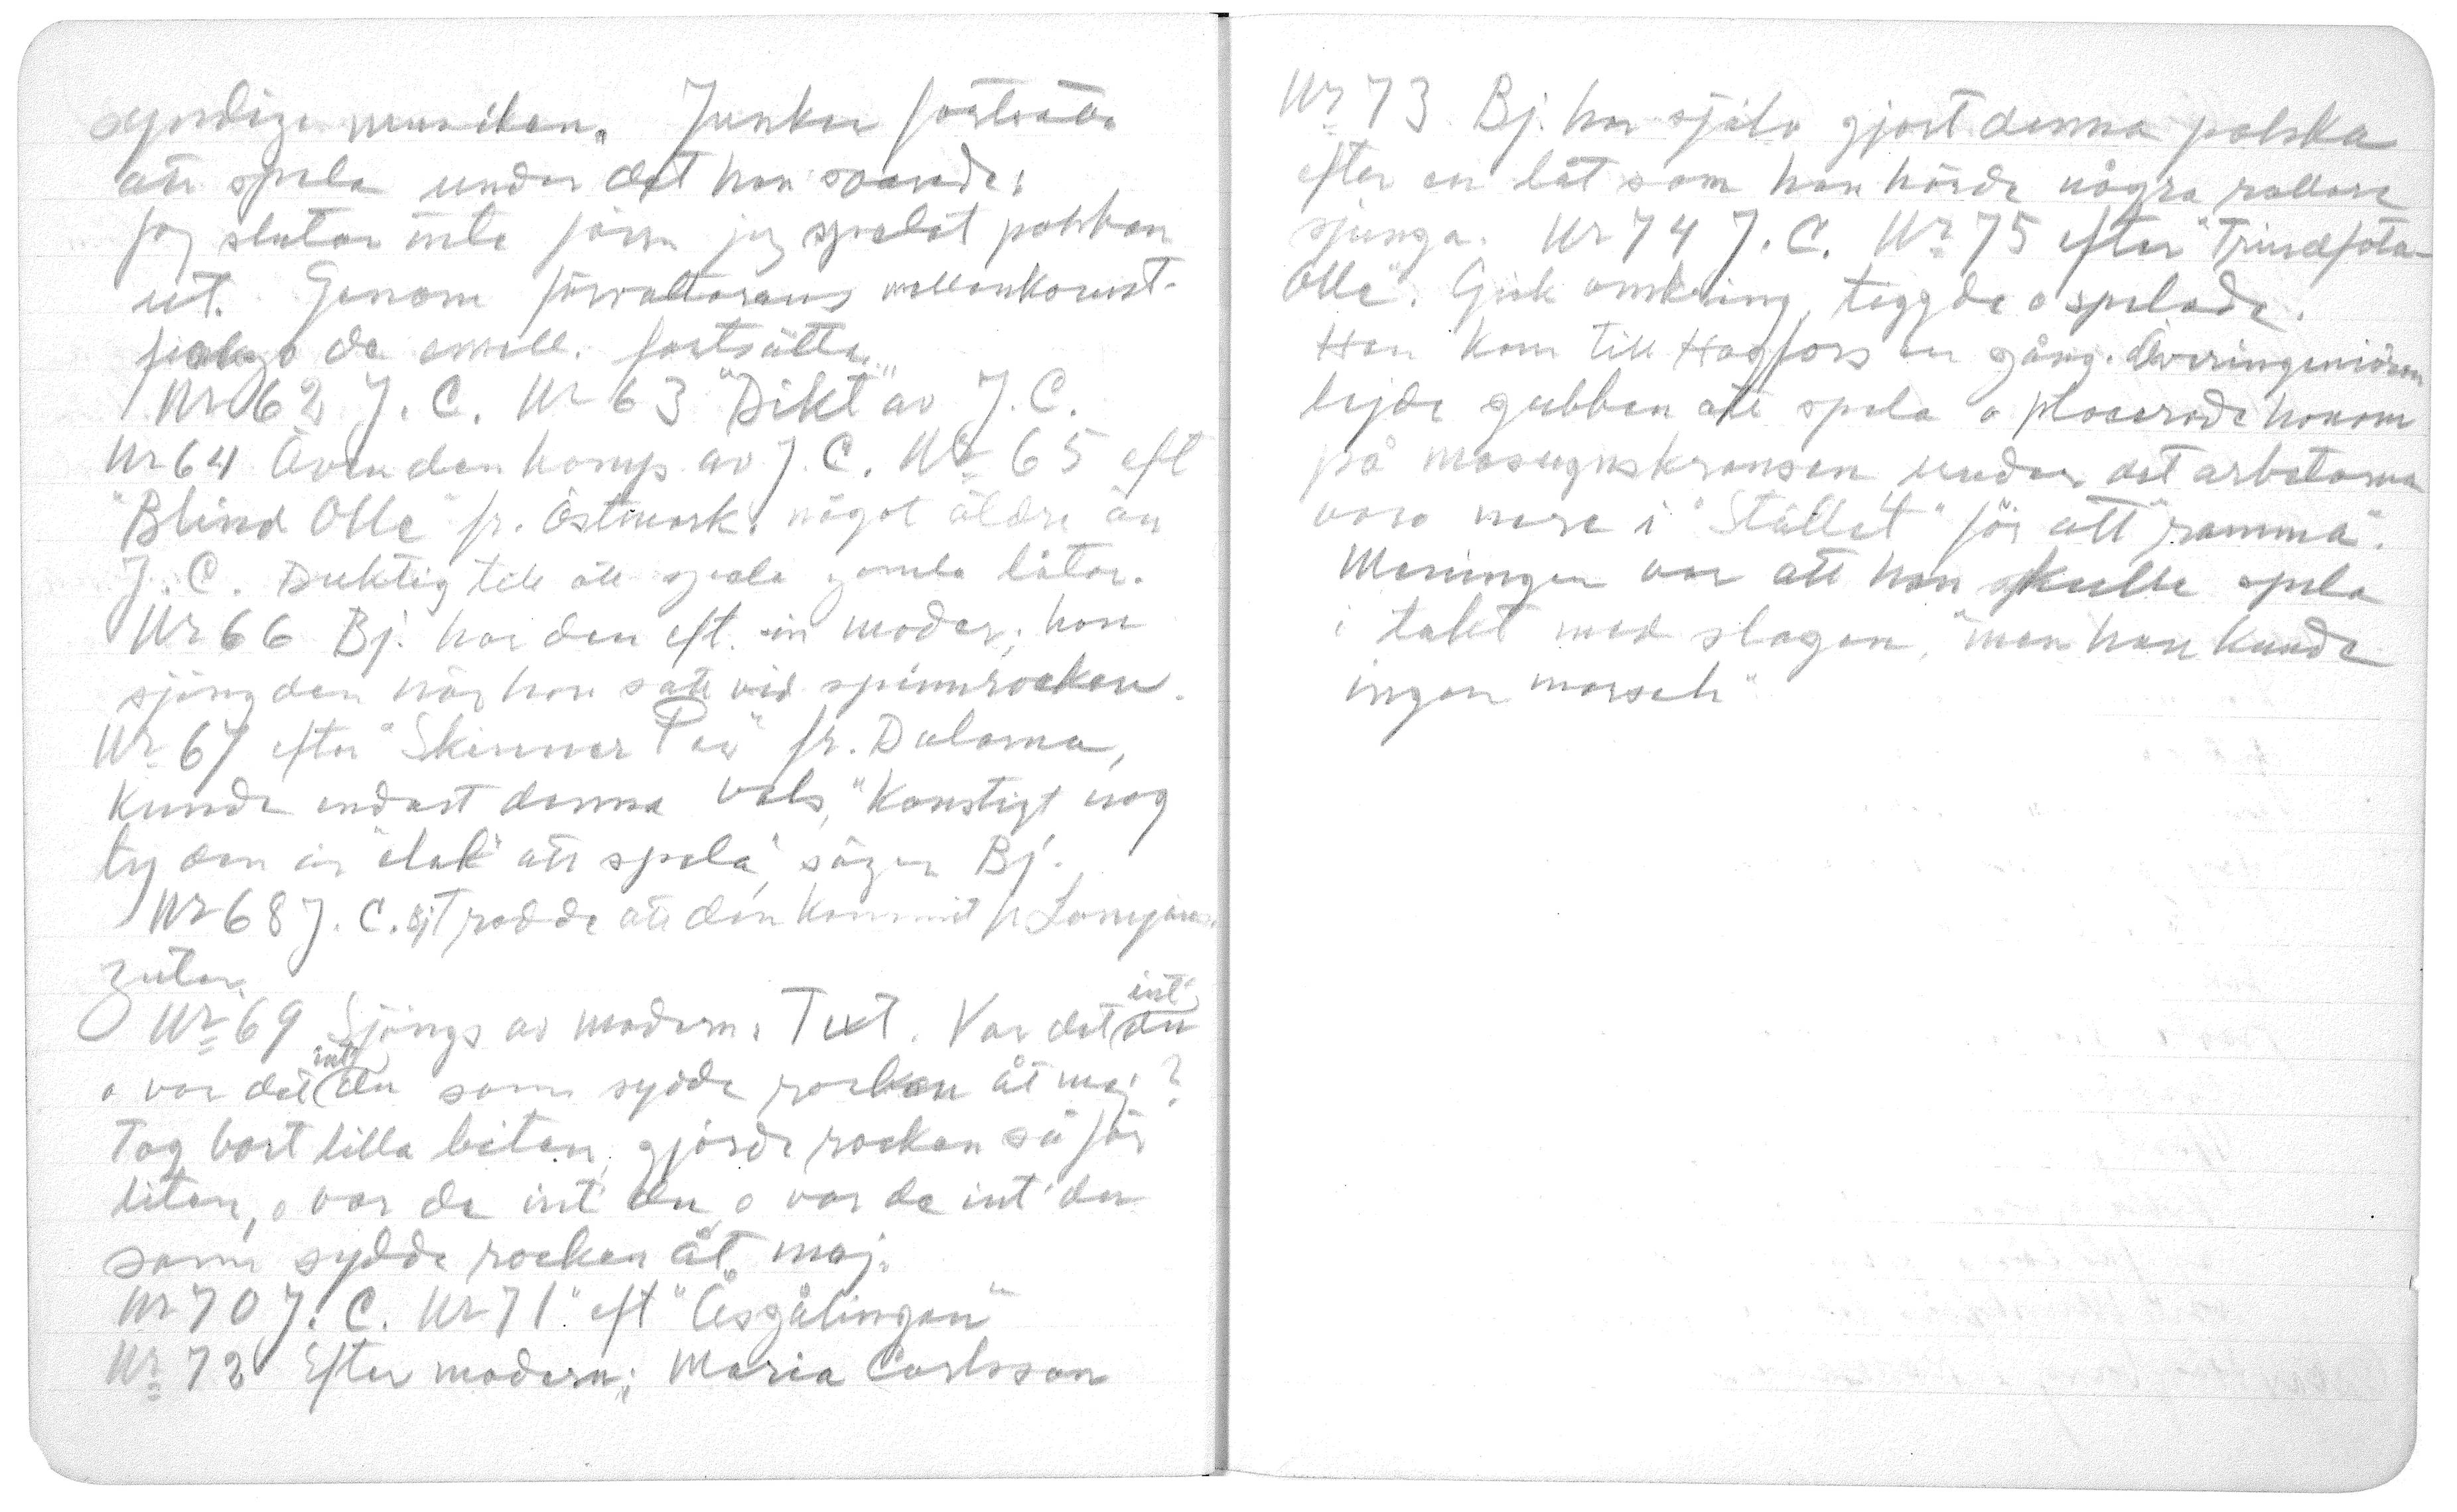 syndiga musiken". Junker fortsatte
att spela under det han svarade:
Jag slutar inte förrn jag spelat polskan
ut. Genom förvaltarens mellankomst
fingo de emell. fortsätta.
Nr 62 J. C. Nr 63 "Dikt" av J. C.
Nr 64 Även den komp. av J. C. Nr 65 eft
"Blind Olle" fr. Östmark. något äldre än
J. C. Duktig till att spela gamla låtar.
Nr 66 Bj. har den eft. sin moder; hon
sjöng den när hon satt vid spinnrocken.
Nr 67 efter "Skinnar Per" fr. Dalarna,
kunde endast denna vals, "Konstigt nog
ty den är "elak" att spela", säger Bj.
Nr 68 J. C. Bj. trodde att den kommit fr

Nr 69 Sjöngs av modern. Text. Var det int' du
o var det int' du som sydde rocken åt maj?
Tog bort lilla biten, gjorde rocken så för
liten, o var de int' du o var de int' du
som sydde rocken åt maj.
Nr 70 J. C. Nr 71 eft "Åsgålingen"
Nr 72 Efter modern; Maria Carlsson
Nr 73 Bj. har själv gjort denna polska
efter en låt som han hörde några rallare
sjunga. Nr 74 J. C. Nr 75 efter "Trindfota-
Olle". Gick omkring, tiggde o spelade.
Han kom till Hagfors en gång. Överingeniören
lejde gubben att spela o placerade honom
på masugnskransen under det arbetarna
voro nere i "Stället" för att "ramma".
Meningen var att han skulle spela
i takt med slagen, "men han kunde
ingen marsch"